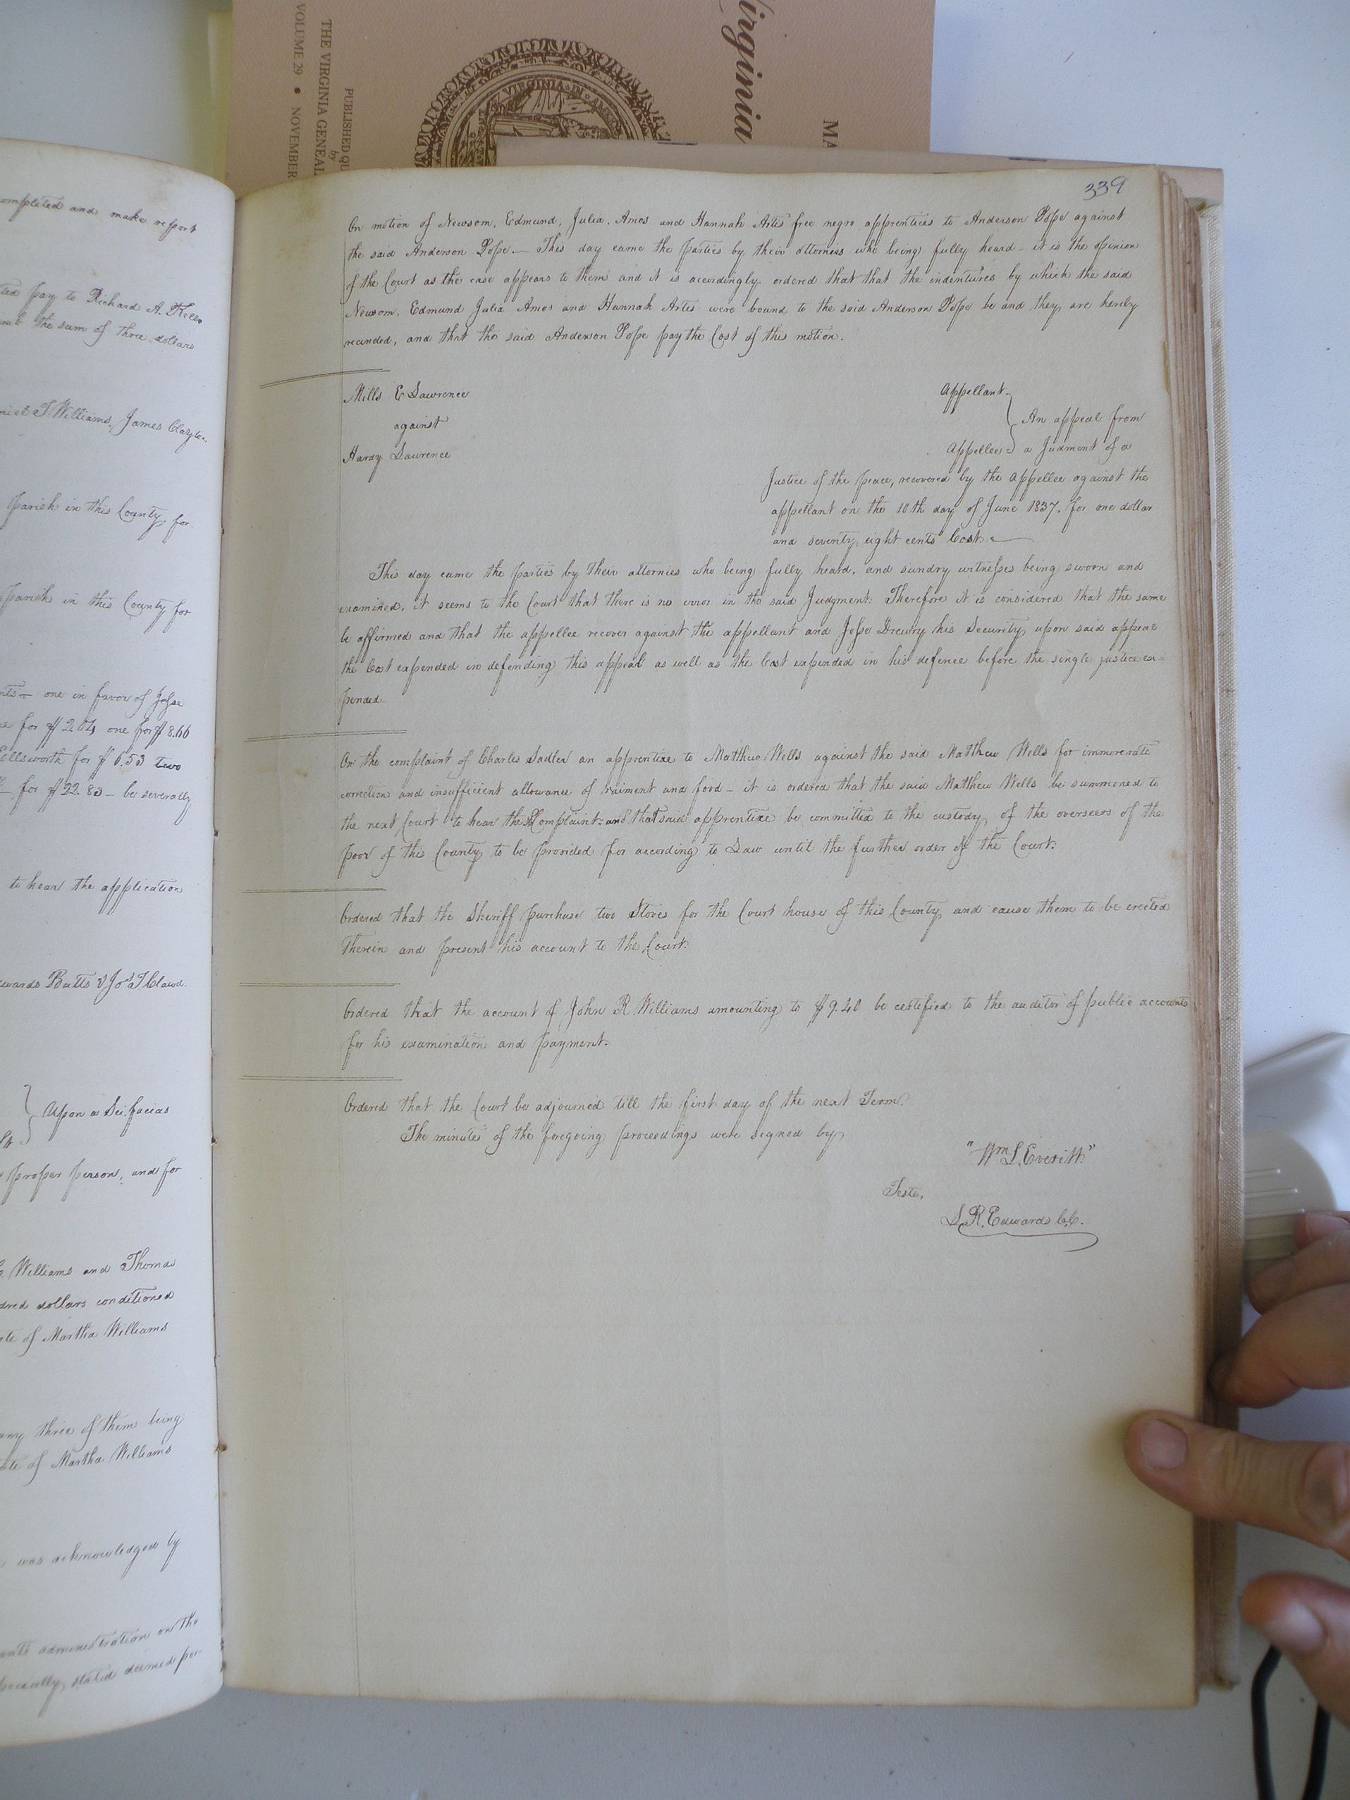 Virginia
MA
PUBLISHED QU
by
THE VIRGINIA GENEAL
VOLUME 29 • NOVEMBER
VIRGINIA
ompleted and make report
ted pay to Richard A.
the sum of three dollars
niel T Williams, James Clayton
Parish in this County for
Parish in this County for
one in favor of Jesse
for $2.04 one for $8.66
Ellsworth for $6.53 two
for $22.83 – be severally
to hear the application
wards Butts & Jos T Claud
Upon a Sci facias
proper person, and for
Williams and Thomas
dred dollars conditioned
ate of Martha Williams
any three of them being
ate of Martha Williams
was acknowledged by
administration on the
specially stated deemed per
339
On motion of Newsom, Edmund, Julia, Amos and Hannah Artis free negro apprentices to Anderson Pope against
the said Anderson Pope.— This day came the parties by their attornies who being fully heard – it is the opinion
of the Court as the case appears to them and it is accordingly ordered that that the indentures by which the said
Newsom, Edmund Julia Amos and Hannah Artis were bound to the said Anderson Pope be and they are hereby
recinded, and that the said Anderson Pope pay the Cost of this motion.
Mills E Lawrence Appellant
against } An appeal from
Hardy Lawrence Appellee a Judment of a
Justice of the peace, recovered by the appellee against the
appellant on the 10th day of June 1837. for one dollar
and seventy eight cents Cost.
This day came the parties by their attornies who being fully heard, and sundry witnesses being sworn and
examined, it seems to the Court that there is no error in the said Judgment. Therefore it is considered that the same
be affirmed and that the appellee recover against the appellant and Jesse Drewry his Security upon said appeal
the Cost expended in defending this appeal as well as the Cost expended in his defence before the single justice ex-
pended.
On the complaint of Charles Sadler an apprentice to Matthew Wells against the said Matthew Wells for immoderate
correction and insufficient allowance of raiment and food – it is ordered that the said Matthew Wells be summoned to
the next Court to hear the Complaint and that said apprentice be committed to the custody of the overseers of the
poor of this County to be provided for according to Law until the further order of the Court.
Ordered that the Sheriff purchase two Stoves for the Court house of this County and cause them to be erected
therein and present his account to the Court.
Ordered that the account of John R Williams amounting to $9.40 be certified to the auditor of public accounts
for his examination and payment.
Ordered that the Court be adjourned till the first day of the next Term.
The minutes of the foregoing proceedings were signed by
"Wm L. Everitt"
Teste,
L. R. Edwards C.C.